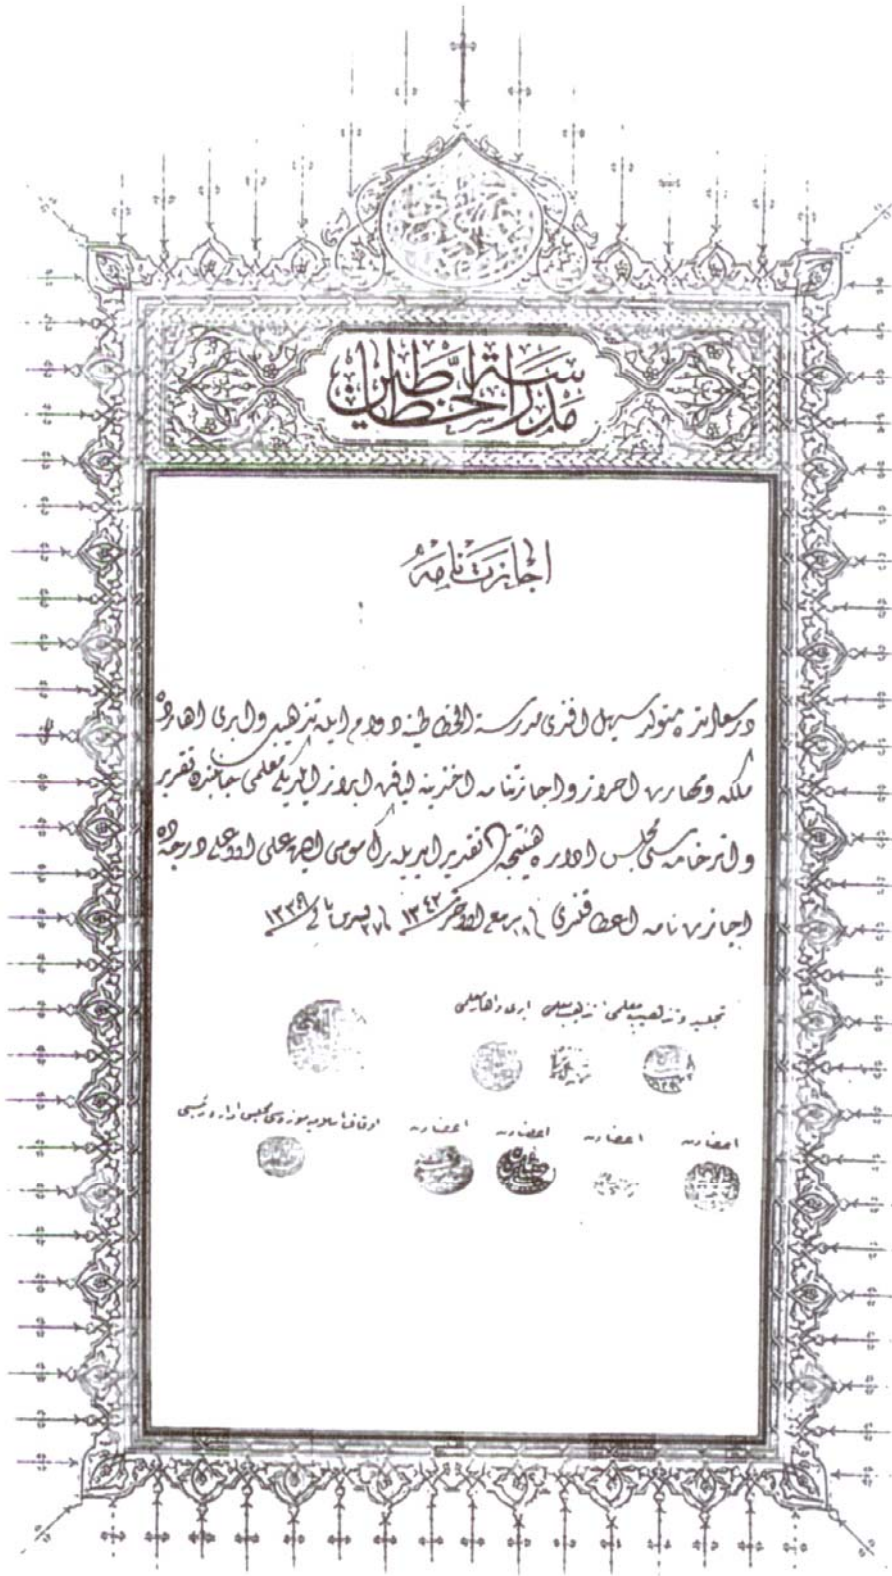 مدرسة الخطاطين
اجازت نامه
درسعادتده متولد سهيل افندى مدرسة الخطاطينه دوام ايله تذهيب و ابرى و اهارده
ملكه و مهارت احراز و اجازتنامه اخذينه لياقت ابراز ايلديكى معلمى جانبندن تقرير
و اثر خامه سى مجلس اداره هيئتنجه تقدير ايديلهرك مومى اليهه على الاعلى درجه ده
اجازت نامه اعطا قلندى ١٨ ربيع الاخر ١٣٤٢ ٢٧ تشرين ثانى ١٣٣٩
تجليد و تذهيب معلمى تذهيب معلمى ابرى و اهار معلمى
اعضادن اعضادن اعضادن اعضادن اوقاف اسلاميه موزه سى مجلس اداره رئيسى